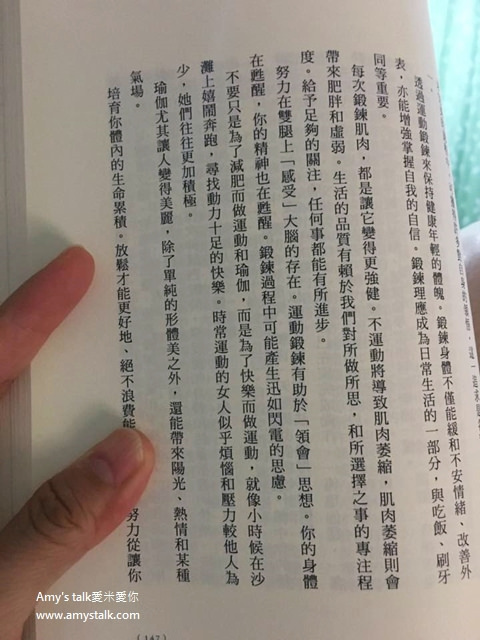 透過運動鍛鍊來保持健康年輕的體魄。鍛鍊身體不僅能緩和不安情緒、改善外
表，亦能增強掌握自我的自信。鍛鍊理應成為日常生活的一部分，與吃飯、刷牙
同等重要。
每次鍛鍊肌肉，都是讓它變得更強健。不運動將導致肌肉萎縮，肌肉萎縮則會
帶來肥胖和虛弱。生活的品質有賴於我們對所做所思，和所選擇之事的專注程
度。給予足夠的關注，任何事都能有所進步。
努力在雙腿上「感受」大腦的存在。運動鍛鍊有助於「領會」思想。你的身體
在甦醒，你的精神也在甦醒。鍛鍊過程中可能產生迅如閃電的思慮。
不要只是為了減肥而做運動和瑜伽，而是為了快樂而做運動，就像小時候在沙
灘上嬉鬧奔跑，尋找動力十足的快樂。時常運動的女人似乎煩惱和壓力較他人為
少，她們往往更加積極。
瑜伽尤其讓人變得美麗，除了單純的形體美之外，還能帶來陽光、熱情和某種
氣場。
培育你體內的生命累積。放鬆才能更好地、絕不浪費能 努力從讓你
(147)
Amy's talk愛米愛你
www.amystalk.com